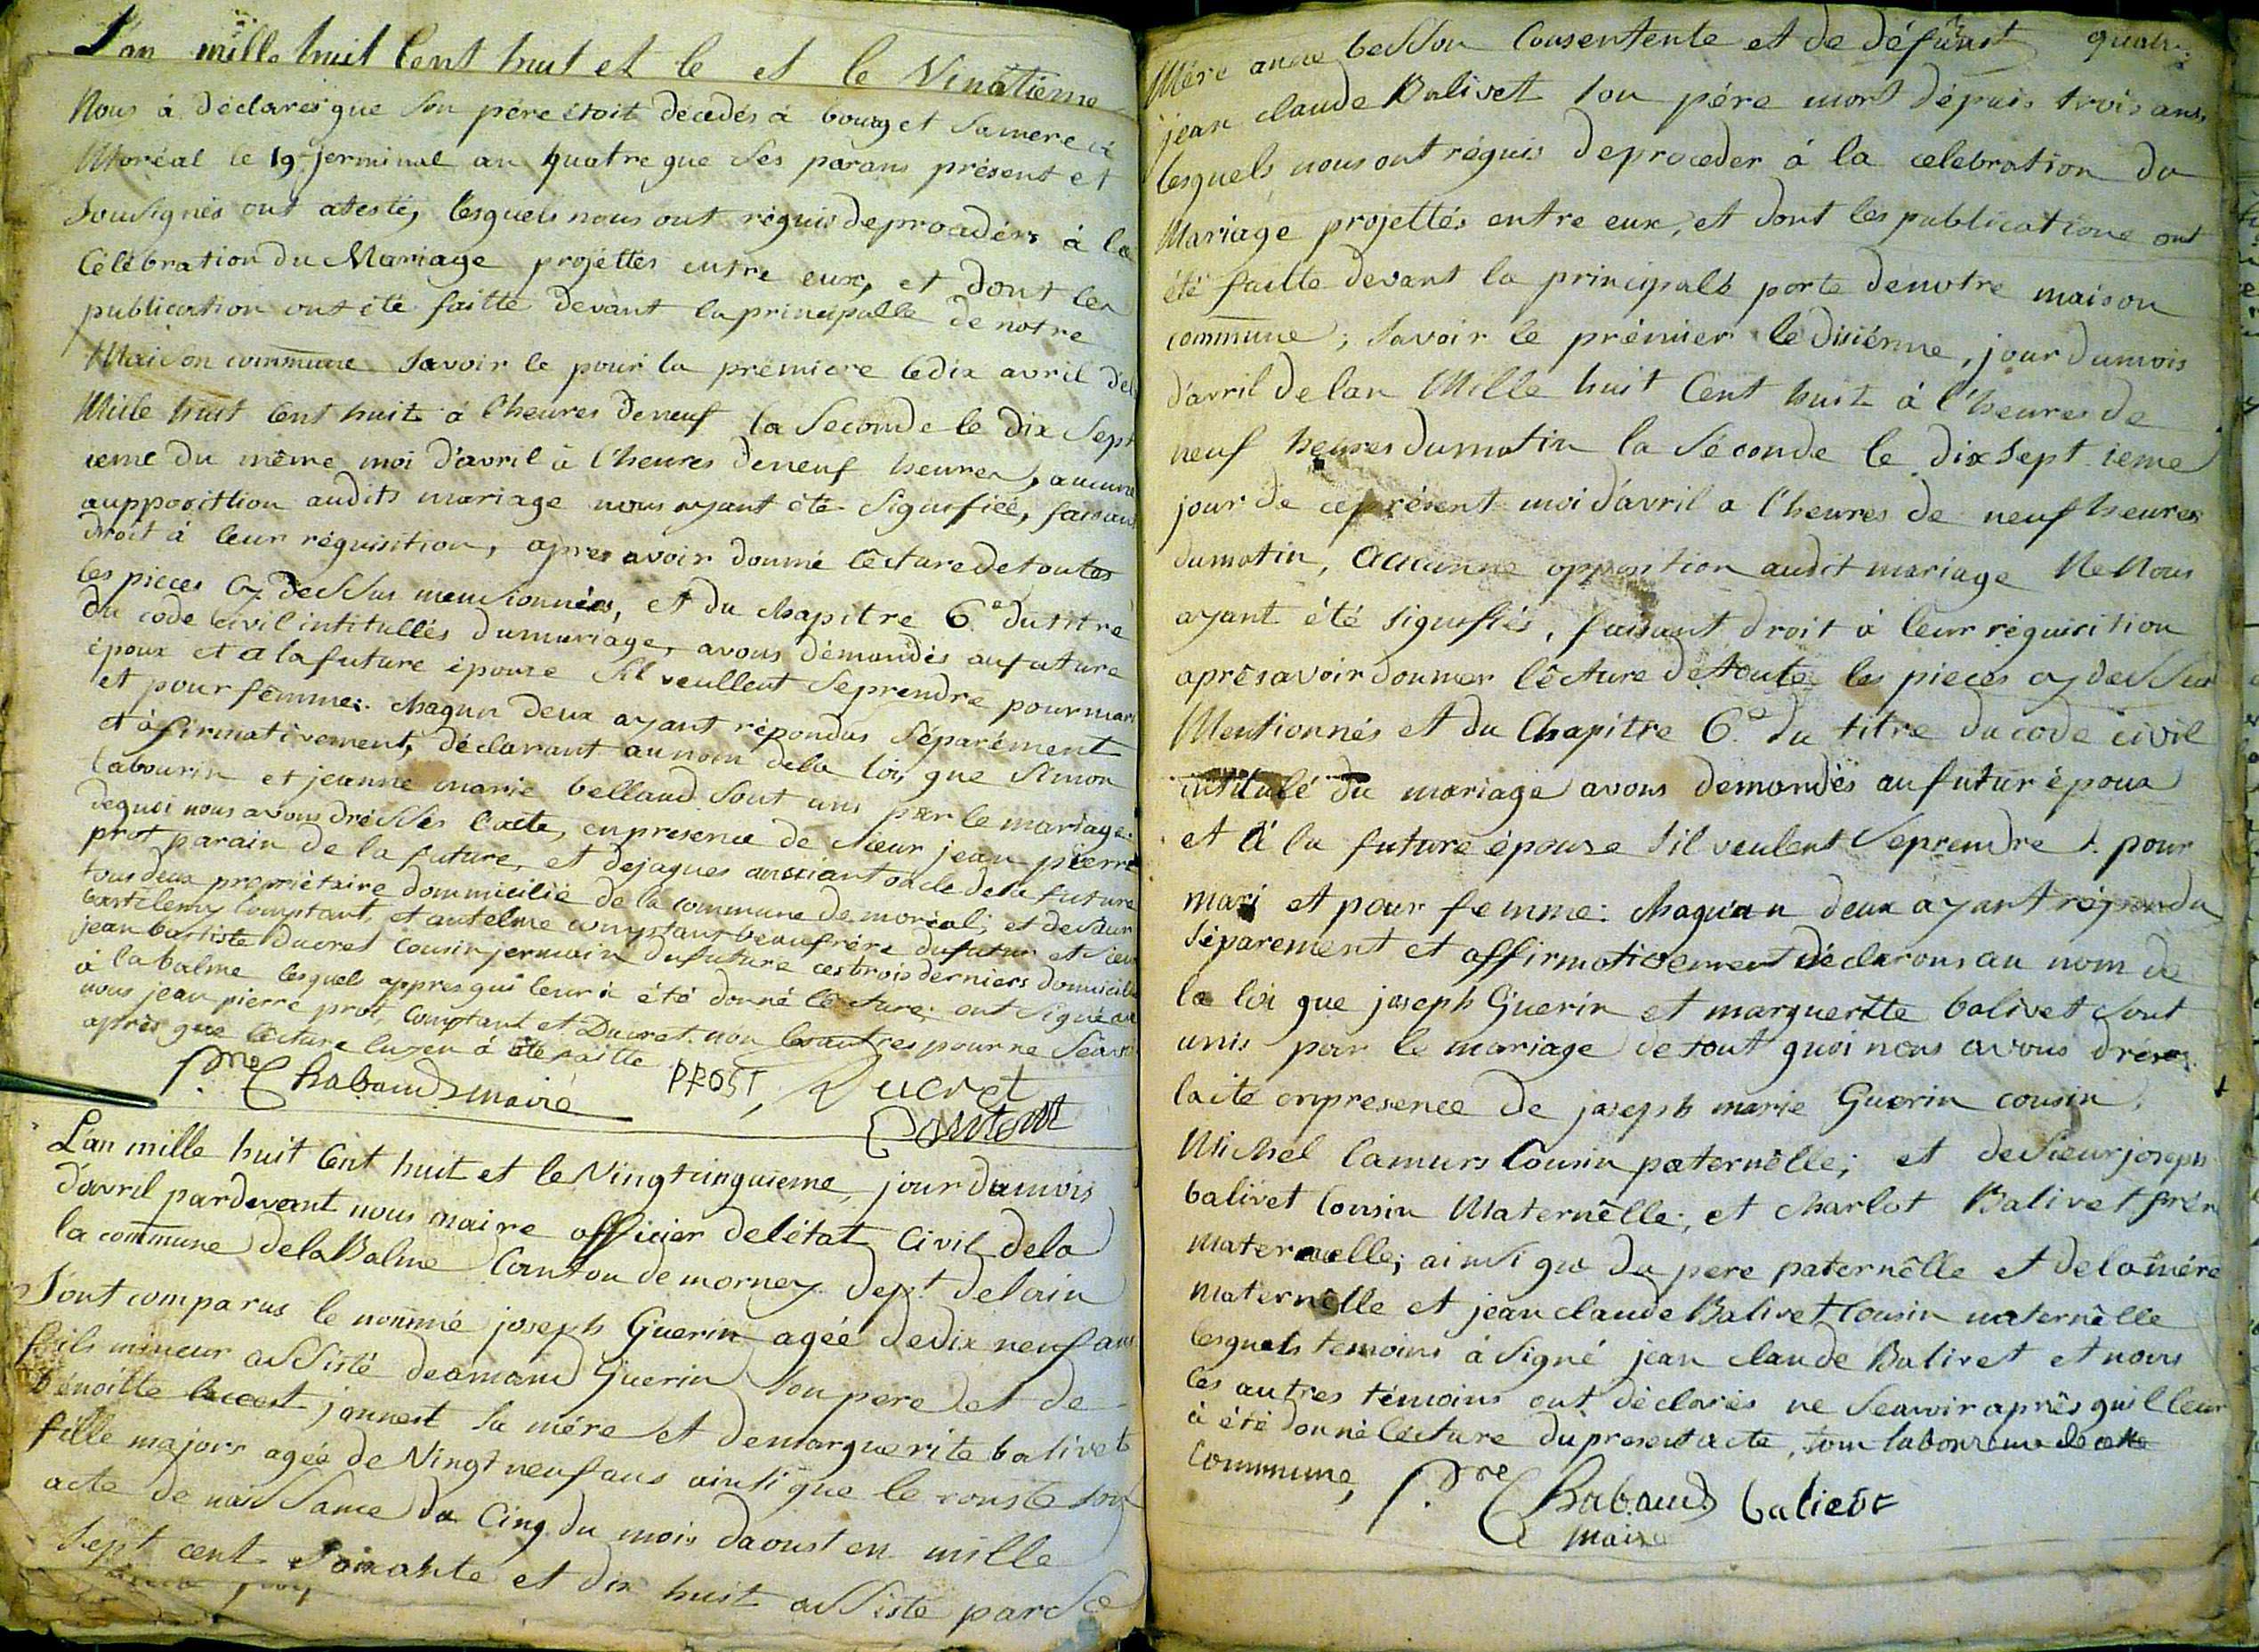 L'an mille huit Cent huit et le et le Vinātieme
Nous à déclarés que son pére étoit décedés à bourg et sa mere à
Moréal le 19 jerminal an quatre que ses parans présent et
sousignés ont atestés, lesquels nous ont réquis de procédérs à la
Célébration du Mariage projéttés entre eux, et dont les
publication ont été faitte devant la principalle de notre
Maison commune Savoir le pour la prémiere le dix avril de
Mille huit Cent huit à l'heures de neuf la Seconde le dix Sept
ieme du même moi d'avril à l'heures de neuf heures, aucune
aupposittion audits mariage nous ayant été Signifiéé, faisant
droit à leur réquisition, apres avoir donné lêcture de toutes
les pieces cy dessus mensionnées, et du chapitre 6e du titre
du code Civil intitullés du mariage, avons démandés au future
époux et a la future épouse Sil veullent se prendre pour mari
et pour fémme: chaqun deux ayant répondus Séparément
et afirmativement, déclarant au nom de la loi, que Simon
labourin et jeanne marie belland sont unis par le mariage.
de quoi nous avons dréssés l'acte, en presence de sieur jean pierre
prot parain de la future, et de jaques anssiant oncle de la future
tous deux propriétaire dommicilié de la commune de moréal, et de Sieur
bartélemy Comptant, et antelme comptant beaufrére du futur et Sieur
jean battiste ducret Cousin jermain du future ces trois derniers domicilié
à la balme lesquels appres qui leur à été donné lecture; ont signé avec
nous jean pierre prot, Comptant et Ducret non les autres pour ne Seavoir
après que lêcture luy en à été faitte
P.re Chabaud maire PROST, Ducret
Contant
L'an mille huit Cent huit et le Vingt cinquieme, jour du mois
d'avril par devant nous maire officier de létat Civil de la
la commune de la Balme Canton de mornay dept. de lain
Sont comparus le nommé joseph Guerin agée de dix neuf ans
fils mineur assisté de amand Guerin son pere et de
bénoitte jannest sa mére et de marguerite balivet
fille majors agée de Vingt neuf ans ainsi que le conste son
acte de naissance du Cinq du mois daoust en mille
Sept cent Soixante et dix huit assisté par Sa
Mére anne besson Consentente et de défunt
jean claude Balivet son pére mort dépuis trois ans,
lesquels nous ont réquis de proceder à la celebration du
Mariage projettés entre eux, et dont les publications ont
été faitte devant la principale porte de notre maison
commune; Savoir le prémier le disiéme, jour du mois
d'avril de lan Mille huit Cent huit à l'heures de
neuf heures du matin la Séconde le dix sept ieme
jour de ce présent moi d'avril a l'heures de neuf heures
du matin, Aucunne opposition audit mariage Ne Nous
ayant été signifiés, faisant droit à leur réquisition
après avoir donner lêcture de toute les pieces cy dessus
Mentionnés et du Chapitre 6e du titre du code civil
intitulé du mariage avons demandés au futur époux
et à la future épouse sil veulent se prendre pour
mari et pour femme: chaqun deux ayant répondu
séparement et affirmativement déclarons au nom de
la loi que joseph Guerin et margueritte balivet sont
unis par le mariage de tout quoi nous avons drésés
lacte en presence de joseph marie Guerin cousin.
Michel lamurs Cousin paternêlle; et de sieur joseph
balivet Cousin Maternêlle; et charlot Balivet frér
Maternelle; ainsi que du pere paternêlle et de la mére
Maternêlle et jean claude Balivet Cousin maternêlle
lesquels temoins à signé jean claude Balivet et nous
les autres témoins ont déclarés ne Seavoir aprês quil leur
à été donné lecture du present acte, tous laboureur de cette
Commune, P.re Chabaud balievt
maire